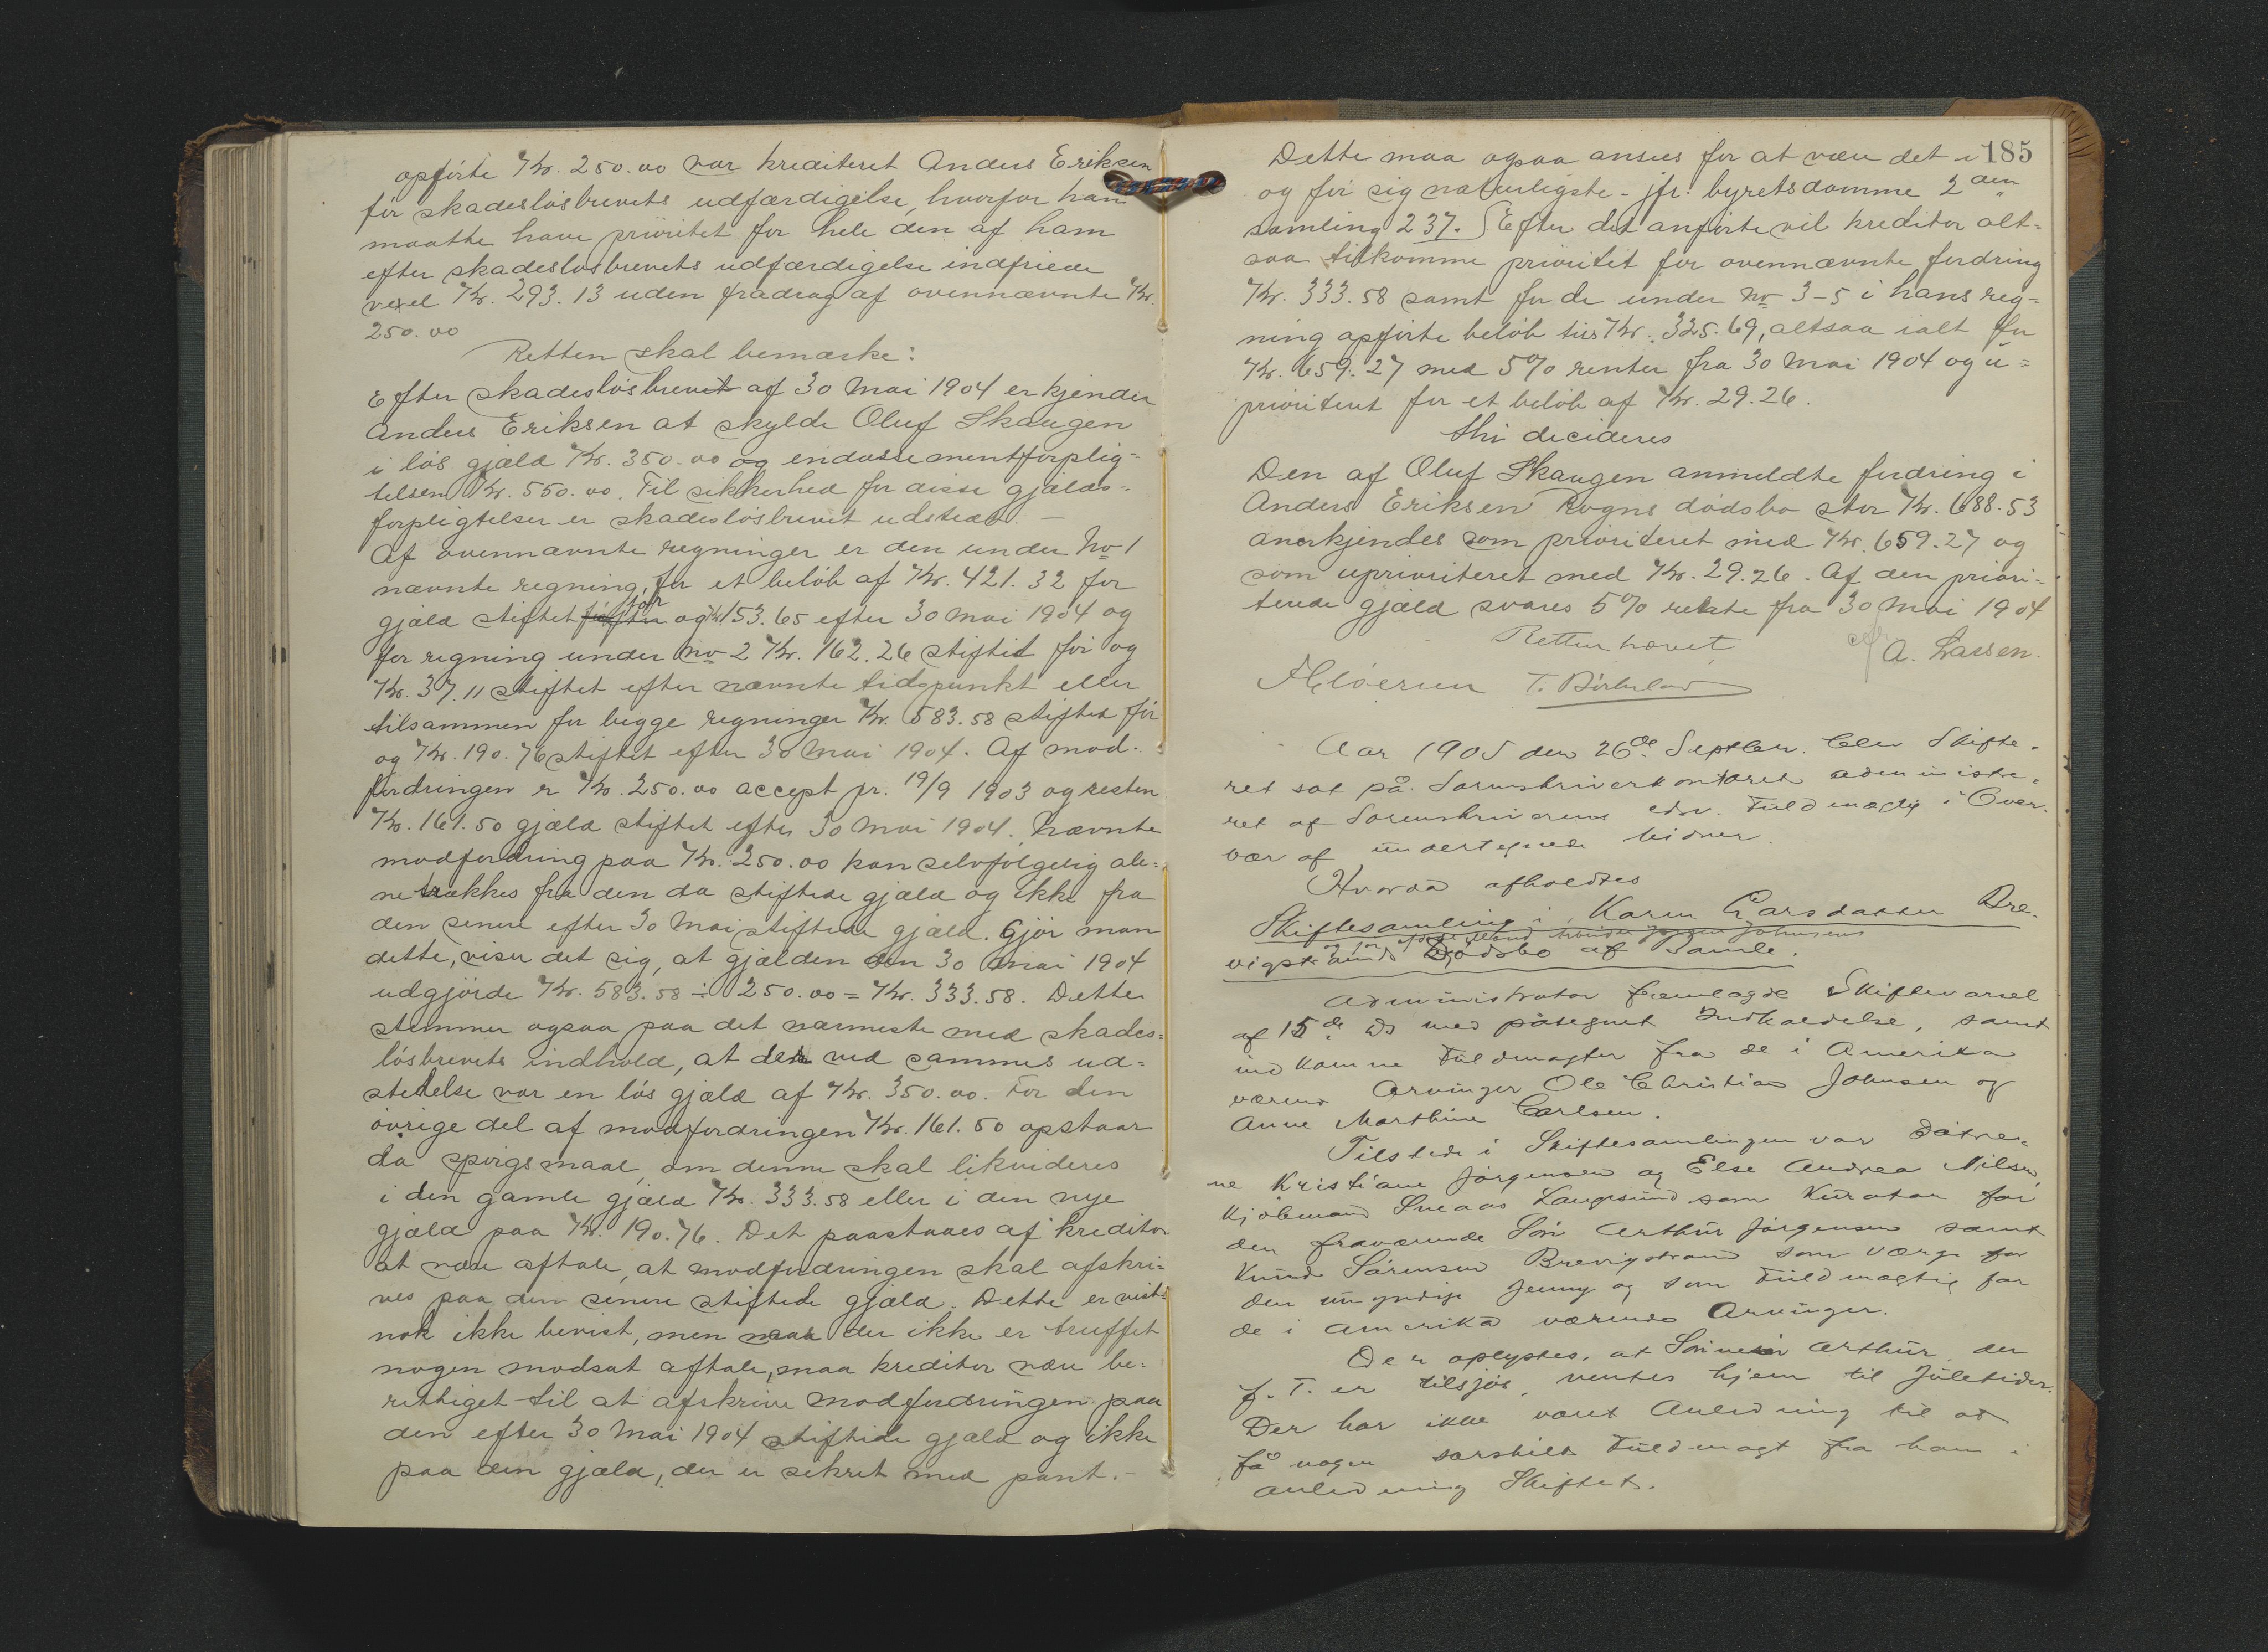 opførte Kr. 250.00 var krediteret Anders Eriksen
før skadesløsbrevets udfærdigelse, hvorfor han
maatte have prioritet for hele den af ham
efter skadesløsbrevets udfærdigelse indfriede
vexel Kr. 293.13 uden fradrag af ovennævnte Kr.
250.00
Retten skal bemærke:
Efter skadesløsbrevet af 30 Mai 1904 erkjender
Anders Eriksen at skylde Oluf Skaugen
i løs gjæld Kr. 350.00 og endossementforplig-
telsen Kr. 550.00. Til sikkerhed for disse gjælds-
forpligtelser er skadesløsbrevet udstedt. —
Af ovennævnte regninger er den under No 1
nævnte regning, for et beløb af Kr. 421.32 for
gjæld stiftet før og Kr. 153.65 efter 30 Mai 1904 og
for regning under No 2 Kr. 162.26 stiftet før og
Kr. 37.11 stiftet efter nævnte tidspunkt eller
tilsammen for begge regninger Kr. 583.58 stiftet før
og Kr. 190.76 stiftet efter 30 Mai 1904. Af mod-
fordringen er Kr. 250.00 accept pr. 19/9 1903 og resten
Kr. 161.50 gjæld stiftet efter 30 Mai 1904. Nævnte
modfordring paa Kr. 250.00 kan selvfølgelig ale-
ne trækkes fra den da stiftede gjæld og ikke fra
den senere efter 30 Mai stiftede gjæld. Gjør man
dette, viser det sig, at gjælden den 30 Mai 1904
udgjorde Kr. 583.58 ÷ 250.00 = Kr. 333.58. Dette
stemmer ogsaa paa det nærmeste med skades-
løsbrevets indhold, at der ved sammes ud-
stedelse var en løs gjæld af Kr. 350.00. For den
øvrige del af modfordringen Kr. 161.50 opstaar
da spørgsmaal, om denne skal likvideres
i den gamle gjæld Kr. 333.58 eller i den nye
gjæld paa Kr. 190.76. Det paastaaes af kreditor
at være aftale, at modfordringen skal afskri-
ves paa den senere stiftede gjæld. Dette er vist-
nok ikke bevist, men naar der ikke er truffet
nogen modsat aftale, maa kreditor være be-
rettiget til at afskrive modfordringen paa
den efter 30 Mai 1904 stiftede gjæld og ikke
paa den gjæld, der er sikret med pant. —
185
Dette maa ogsaa ansees for at være det i
og for sig naturligste - jfr. byretsdomme 2den
samling 237. Efter det anførte vil kreditor alt-
saa tilkomme prioritet for ovennævnte fordring
Kr. 333.58 samt for de under No 3-5 i hans reg-
ning opførte beløb tils Kr. 325.69, altsaa ialt for
Kr. 659.27 med 5% renter fra 30 Mai 1904 og u-
prioriteret for et beløb af Kr. 29.26.
Thi decideres
Den af Oluf Skaugen anmeldte fordring i
Anders Eriksen Rogns dødsbo stor Kr. 688.53
anerkjendes som prioriteret med Kr. 659.27 og
som uprioriteret med Kr. 29.26. Af den priori-
terede gjæld svares 5% rente fra 30 Mai 1904
Retten hævet
A. Lassen.
T. Birkeland
Aar 1905 den 26de Septber. blev Skifte-
ret sat på Sorenskriverkontoret administre-
ret af Sorenskriverens edsv. Fuldmægtig i Over-
vær af undertegnede Vidner.
Hvorda afholdtes
Skiftesamling i Karen Larsdatter Bre-
og før afdøde Mand Arbeider Jørgen Johnsens
vigstrands Dødsbo af Bamle.
Administrator fremlagde Skiftevarsel
af 15de ds med påtegnet Indkaldelse, samt
indkomne Fuldmagter fra de i Amerika
værende Arvinger Ole Christian Johnsen og
Anne Marthine Carlsen.
Tilstede i Skiftesamlingen var Døtre-
ne Kristiane Jørgensen og Else Andrea Nilsen,
Kjøbmand Sneaas Langesund som Kurator for
den fraværende Søn Arthur Jørgensen samt
Knud Sørensen Brevigstrand som Værge for
den umyndige Jenny og som Fuldmægtig for
de i Amerika værende Arvinger.
Der oplystes, at Sønnen Arthur, der
f. T. er tilsjøs, ventes hjem til Juletider.
Der har ikke været Anledning til at
få nogen særskilt Fuldmagt fra ham i
Anledning Skiftet.